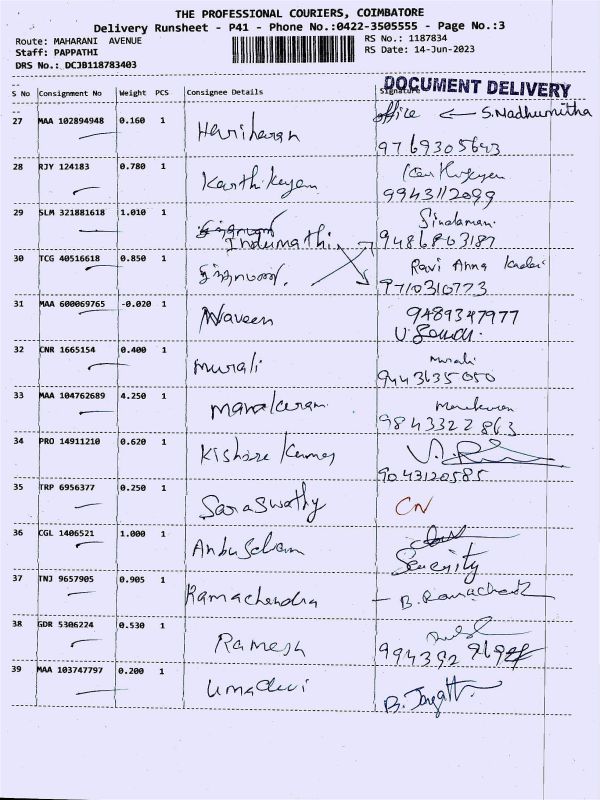 THE PROFESSIONAL COURIERS, COIMBATORE
Delivery Runsheet - P41 - Phone No.:0422-3505555 - Page No.:3
Route: MAHARANI AVENUE
RS No.: 1187834
Staff: PAPPATHI
RS Date: 14-Jun-2023
DRS No.: DCJB118783403
DOCUMENT DELIVERY
S No Consignment No Weight PCS Consignee Details Signature
office ← S.Nadhumitha
27 MAA 102894948 0.160 1 Hariharan
9769305643
28 RJY 124183 0.780 1 Karthikeyan
9943112099
29 SLM 321881618 1.010 1 Indumathi
9486803187
30 TCG 40516618 0.850 1 Ravi Anna
9710310773
31 MAA 600069765 -0.020 1 Naveen 9489347977
32 CNR 1665154 0.400 1 Murali Murali
9443635050
33 MAA 104762689 4.250 1
9843322863
34 PRO 14911210 0.620 1 Kishore Kumar
9043120585
35 TRP 6956377 0.250 1 Saraswathy CN
36 CGL 1406521 1.000 1 Anbu Selvam Serenity
37 TNJ 9657905 0.905 1 Ramachandra
38 GDR 5306224 0.530 1 Ramesh
39 MAA 103747797 0.200 1 Umadevi